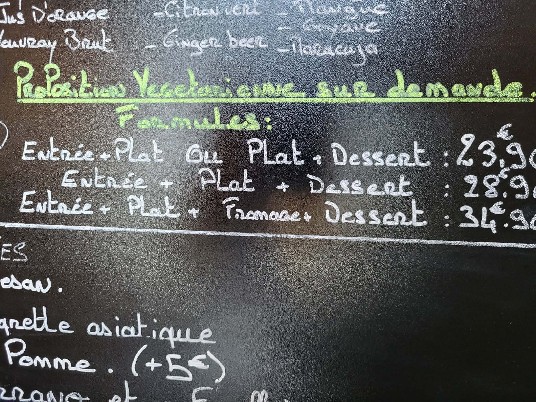 Jus D'orange - Citron vert - Mangue
- Goyave
Vouvray Brut - Ginger beer - Maracuja
Proposition Vegetarienne sur demande.
Formules:
Entrée + Plat ou Plat + Dessert : 23,€90
Entrée + Plat + Dessert : 28.€90
Entrée + Plat + Fromage + Dessert : 34.€90
ES
esan.
grette asiatique
Pomme. (+5€)
et